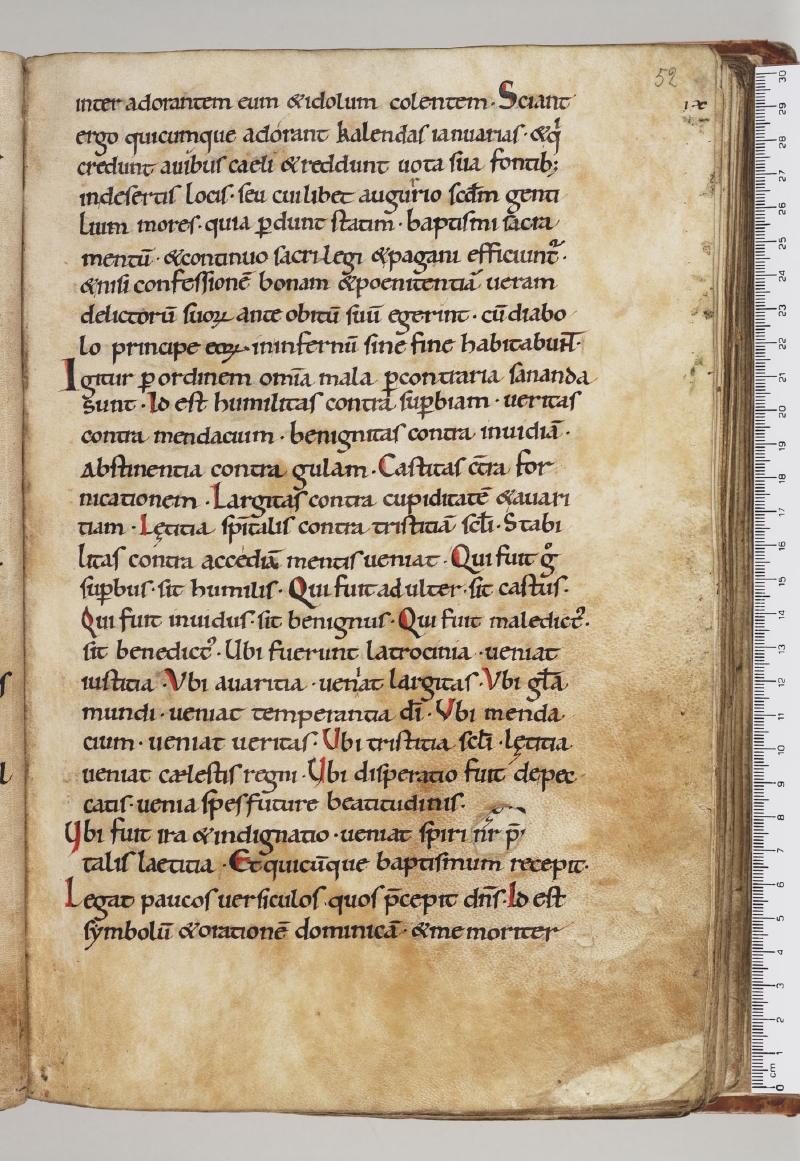 52
inter adorantem eum &idolum colentem· Sciant
ıx
ergo quicumque adorant kalendas ianuarias· &q̇
credunt auibus caeli &reddunt uota sua fontib;
indesertis locis· seu cuilibet augurio scdm̄ genti
lium mores· quia ꝑdunt statim· baptismi sacra
mentū· &continuo sacrilegi &pagani efficiunt᷑·
&nisi confessionē bonam &poenitentiā ueram
delictorū suoꝝ ante obitū suū egerint· cū diabo
lo principe eoꝝ· ininfernū sine fine habitabunt̄·
Igitur ꝑordinem omīa mala ꝑcontraria sananda
sunt· Id est humilitas contra suꝑbiam· ueritas
contra mendacium· benignitas contra inuidiā·
Abstinentia contra gulam· Castitas c̄tra for
nicationem· Largitas contra cupiditatē &auari
tiam· Lętitia spītalis contra tristitiā scl̄i· Stabi
litas contra accediā mentis ueniat· Qui fuit g̊
suꝑbus· sit humilis· Qui fuit adulter· sit castus·
Qui fuit inuidus· sit benignus· Qui fuit maledictꝰ·
sit benedictꝰ· Ubi fuerunt latrocinia· ueniat
iustitia· Vbi auaritia· ueniat largitas· Vbi gl̄a
mundi· ueniat temperantia dī· Vbi menda
cium· ueniat ueritas· Vbi tristitia scl̄i· lętitia
ueniat cælestis regni· Vbi disperatio fuit depec
catis· uenia spes future beatitudinis·
Vbi fuit ira &indignatio· ueniat spiri
talis laetitia· Et quicūque baptismum recepit·
Legat paucos uersiculos quos p̄cepit dn̄s· Id est
symbolū &orationē dominicā· &memoriter